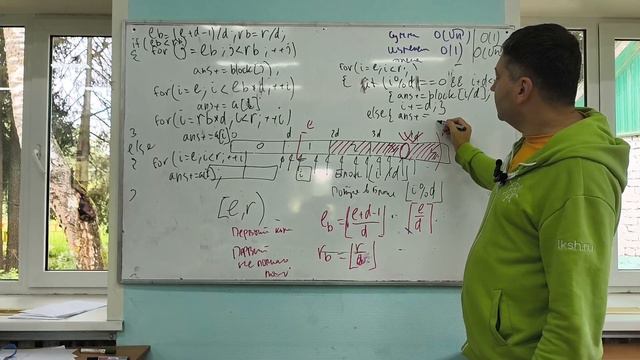 eb = (e+d-1)/d, rb = r/d,
if (eb<rb)
{ for (j=eb; j<rb, ++j)
ans += block[j];
for(i=e, i<eb*d, ++i)
ans += a[i]
for(i=rb*d, i<r; ++i)
ans += a[i]
}
else
{ for(i=e, i<r, ++i)
ans += a[i]
}
Сумма O(√n) O(1)
Изменен O(1) O(√n)
for(i=e, i<r;)
{ if (i%d)==0 && i+d≤r
{ ans += block[i/d],
i += d; }
else { ans +=
0 d e 2d 3d 4d
0 1
i Блок [i/d]
Позиция в блоке [i%d]
[e,r)
Первый
Первый
не полного
eb = [e+d-1/d] [e/d]
rb = [r/d]
lksh.ru